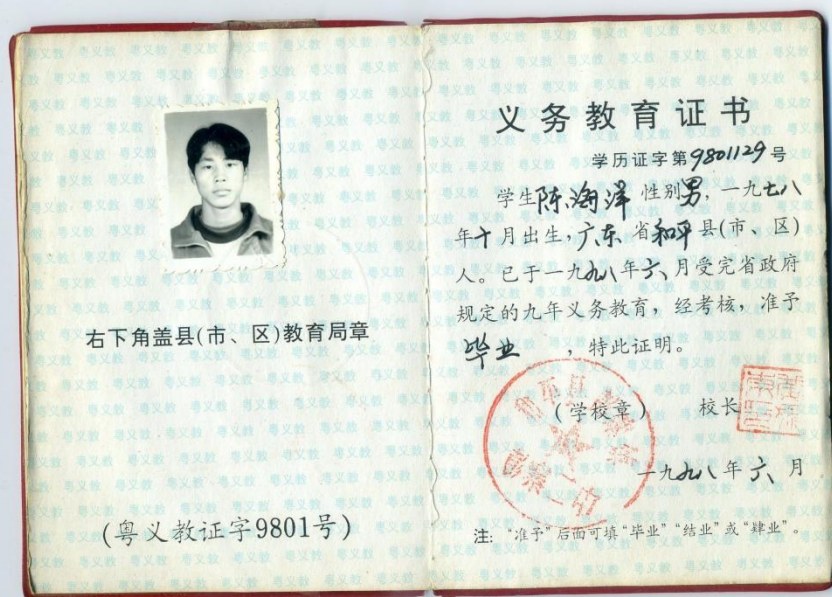 右下角盖县(市、区)教育局章
(粤义教证字9801号)
义务教育证书
学历证字第9801129号
学生陈海洋 性别男, 一九七八
年十月出生, 广东省和平县(市、区)
人。已于一九九八年六月受完省政府
规定的九年义务教育, 经考核, 准予
毕业 , 特此证明。
(学校章) 校长
一九九八年六月
注: “准予”后面可填“毕业”“结业”或“肄业”。